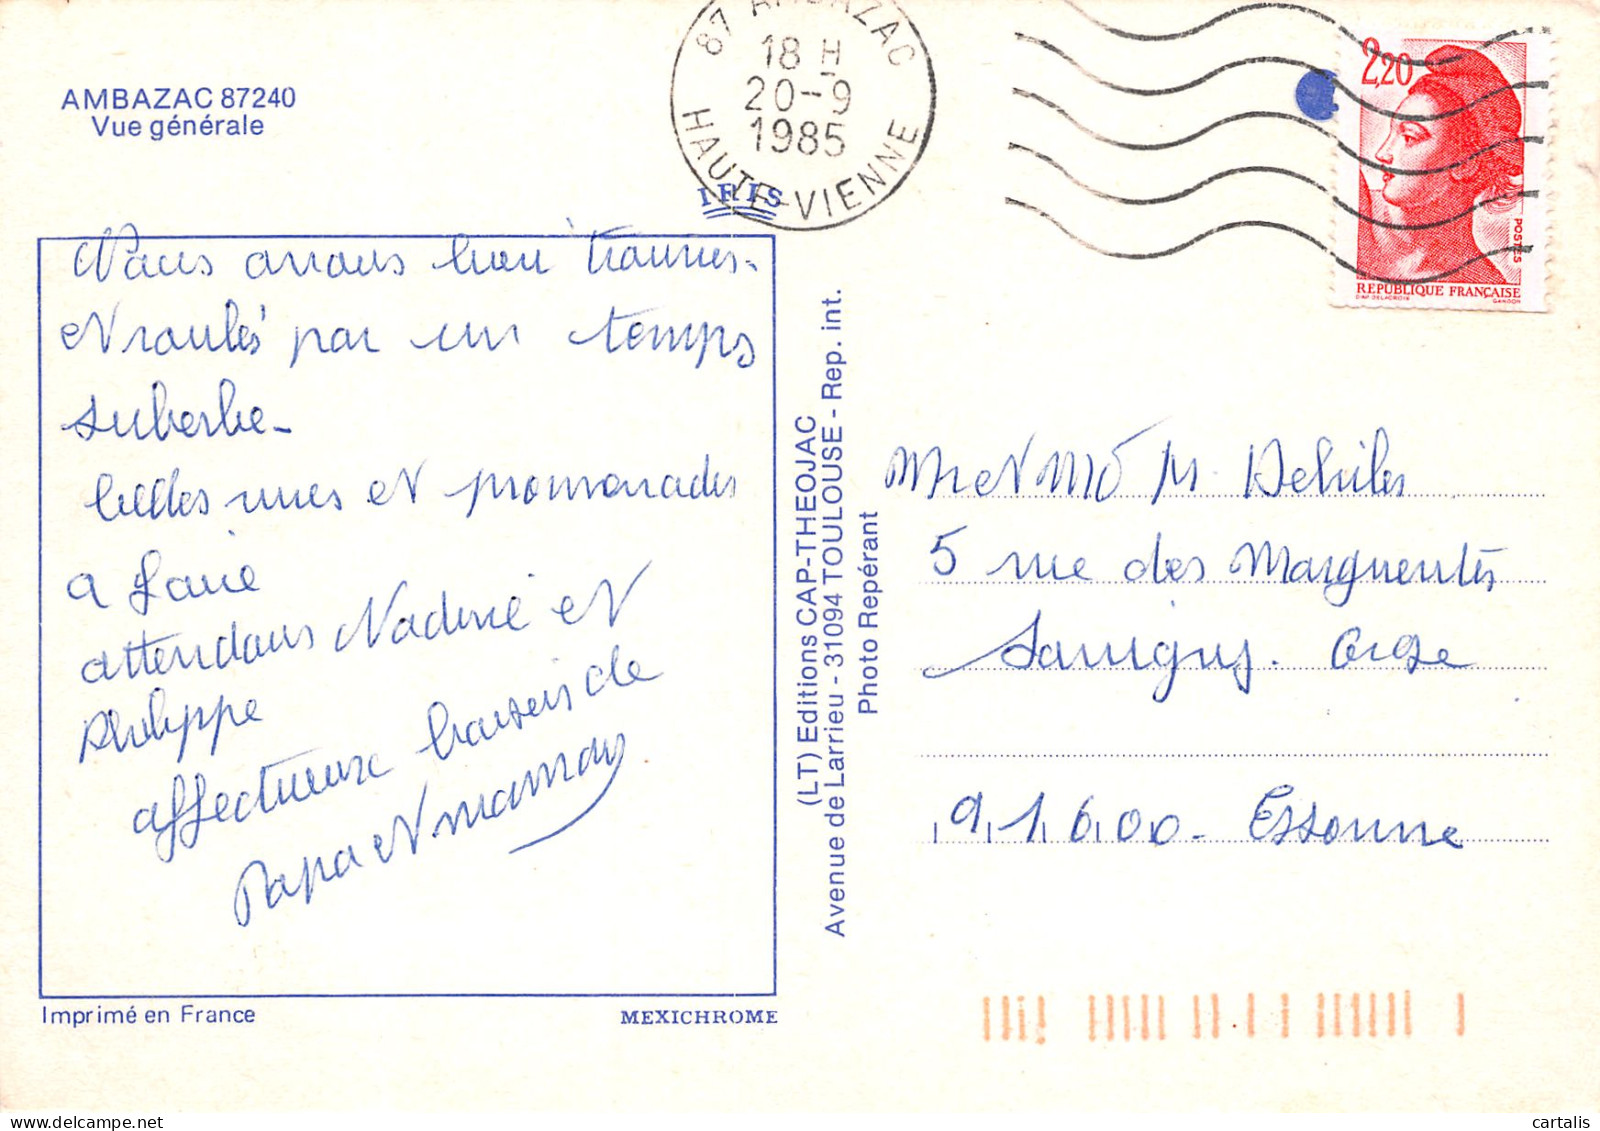 AMBAZAC 87240
Vue générale
87 AMBAZAC
18 H
20-9
1985
HAUTE-VIENNE
IRIS
2,20
POSTES
REPUBLIQUE FRANÇAISE
DAP. DELACROIX GANDON
Nous avons bien
et roulés par un temps
superbe -
belles vues et promenades
a faire
attendons Nadine et
Philippe
affectueux baisers de
Papa et maman
(LT) Editions CAP-THEOJAC
Avenue de Larrieu - 31094 TOULOUSE - Rep. int.
Photo Repérant
Mr et Mme M.
5 rue des Marguerites
Savigny. Orge
91600 - Essonne
Imprimé en France
MEXICHROME
cartalis